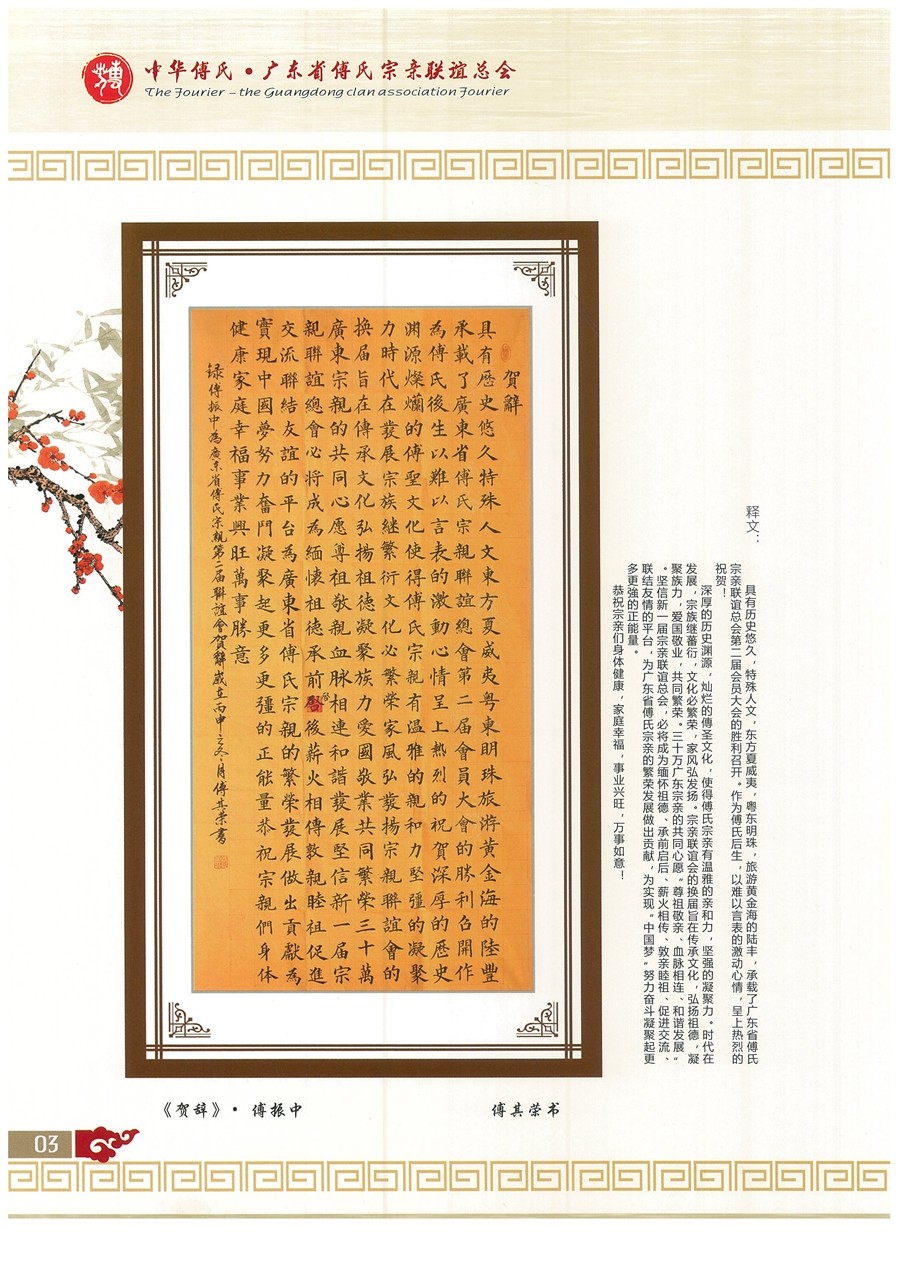 中华傅氏•广东省傅氏宗亲联谊总会
The Fourier – the Guangdong clan association Fourier
賀辭
具有歷史悠久特殊人文東方夏威夷粤東明珠旅游黄金海的陸豐
承載了廣東省傅氏宗親聯誼總會第二届會員大會的勝利召開作
為傅氏後生以難以言表的激動心情呈上热烈的祝賀深厚的歷史
渊源燦爛的傅聖文化使得傅氏宗親有温雅的親和力堅彊的凝聚
力時代在發展宗族継繁衍文化必繁榮家風弘發揚宗親聯誼會的
换届旨在傳承文化弘揚祖德凝聚族力愛國敬業共同繁榮三十萬
廣東宗親的共同心愿尊祖敬親血脉相連和諧發展堅信新一届宗
親聯誼總會必将成為緬懷祖德承前啓後薪火相傳敦親睦祖促進
交流聯結友誼的平台為廣東省傅氏宗親的繁榮發展做出貢獻為
實現中國夢努力奮鬥凝聚起更多更彊的正能量恭祝宗親們身体
健康家庭幸福事業興旺萬事勝意
録傅振中為廣东省傅氏宗親第二届聯誼會賀辭歲在丙申之冬月傅其荣書
释文：
具有历史悠久，特殊人文，东方夏威夷，粤东明珠，旅游黄金海的陆丰，承载了广东省傅氏
宗亲联谊总会第二届会员大会的胜利召开。作为傅氏后生，以难以言表的激动心情，呈上热烈的
祝贺！
深厚的历史渊源，灿烂的傅圣文化，使得傅氏宗亲有温雅的亲和力，坚强的凝聚力。时代在
发展，宗族继蕃衍，文化必繁荣，家风弘发扬。宗亲联谊会的换届旨在传承文化，弘扬祖德，凝
聚族力，爱国敬业，共同繁荣。三十万广东宗亲的共同心愿“尊祖敬亲、血脉相连、和谐发展”
。坚信新一届宗亲联谊总会，必将成为缅怀祖德、承前启后、薪火相传、敦亲睦祖、促进交流、
联结友情的平台，为广东省傅氏宗亲的繁荣发展做出贡献，为实现“中国梦”努力奋斗凝聚起更
多更強的正能量。
恭祝宗亲们身体健康，家庭幸福，事业兴旺，万事如意！
《贺辞》• 傅振中
傅其荣书
03